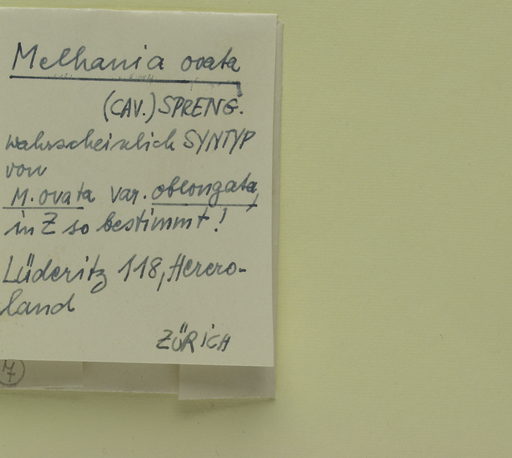 Melhania ovata
(CAV.) SPRENG.
wahrscheinlich SYNTYP
von
M. ovata var. oblongata,
in Z so bestimmt!
Lüderitz 118, Herero-
land
ZÜRICH
M
7